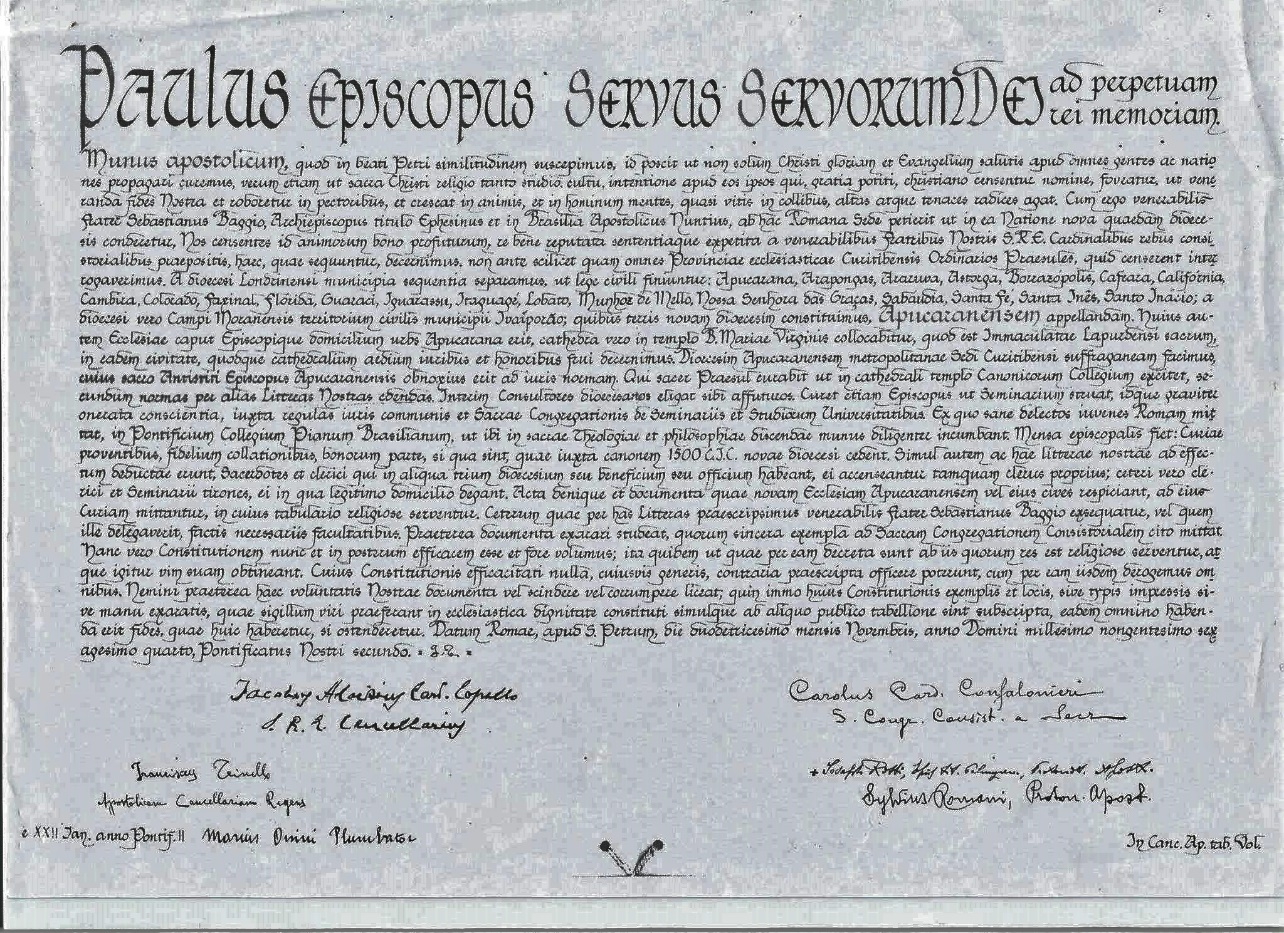 Paulus Episcopus Servus Servorum Dei ad perpetuam
rei memoriam.
Munus apostolicum, quod in beati Petri similitudinem suscepimus, id poscit ut non solum Christi gloriam et Evangelium salutis apud omnes gentes ac natio
nes propagari curemus, verum etiam ut sacra Christi religio tanto studio, cultu, intentione apud eos ipsos qui, gratia potiti, christiano censentur nomine, foveatur, ut vene
randa fides Nostra et roboretur in pectoribus, et crescat in animis, et in hominum mentes, quasi vitis in collibus, altas atque tenaces radices agat. Cum ergo venerabilis
frater Sebastianus Baggio, Archiepiscopus titulo Ephesinus et in Brasilia Apostolicus Nuntius, ab hac Romana Sede petierit ut in ea Natione nova quaedam dioece-
sis conderetur, Nos censentes id animorum bono profuturum, re bene reputata sententiaque expetita a venerabilibus fratribus Nostris S.R.E. Cardinalibus rebus consi
storialibus praepositis, haec, quae sequuntur, decernimus, non ante scilicet quam omnes Provinciae ecclesiasticae Curitibensis Ordinarios Praesules, quid censerent inter
rogaverimus. A dioecesi Londrinensi municipia sequentia separamus, ut lege civili finiuntur: Apucarana, Arapongas, Araruva, Astorga, Borrazópolis, Cafeara, Califórnia,
Cambira, Colorado, Faxinal, Flórida, Guaraci, Iguarassu, Itaguagé, Lobato, Munhoz de Mello, Nossa Senhora das Graças, Sabáudia, Santa Fé, Santa Inês, Santo Inácio; a
dioecesi vero Campi Moranensis territorium civilis municipii Ivaiporão; quibus terris novam dioecesim constituimus, Apucaranensem appellandam. Huius au-
tem Ecclesiae caput Episcopique domicilium urbs Apucarana erit, cathedra vero in templo B. Mariae Virginis collocabitur, quod est Immaculatae Lapurdensi sacrum,
in eadem civitate, quodque cathedralium aedium iuribus et honoribus frui decernimus. Dioecesim Apucaranensem metropolitanae Sedi Curitibensi suffraganeam facimus,
cuius sacro Antistiti Episcopus Apucaranensis obnoxius erit ad iuris normam. Qui sacer Praesul curabit ut in cathedrali templo Canonicorum Collegium excitet, se-
cundum normas per alias Litteras Nostras edendas. Interim Consultores dioecesanos eligat sibi affuturos. Curet etiam Episcopus ut Seminarium struat, idque graviter
onerata conscientia, iuxta regulas iuris communis et Sacrae Congregationis de Seminariis et Studiorum Universitatibus. Ex quo sane delectos iuvenes Romam mit
tat, in Pontificium Collegium Pianum Brasilianum, ut ibi in sacrae Theologiae et philosophiae discendae munus diligenter incumbant. Mensa episcopalis fiet: Curiae
proventibus, fidelium collationibus, bonorum parte, si qua sint, quae iuxta canonem 1500 C.J.C. novae dioecesi cedent. Simul autem ac hae litterae nostrae ad effec-
tum deductae erunt, Sacerdotes et clerici qui in aliqua trium dioecesium seu beneficium seu officium habeant, ei accenseantur tamquam clerus proprius; ceteri vero cle-
rici et Seminarii tirones, ei in qua legitimo domicilio degant. Acta denique et documenta quae novam Ecclesiam Apucaranensem vel eius cives respiciant, ad eius
Curiam mittantur, in cuius tabulario religiose serventur. Ceterum quae per has Litteras praescripsimus venerabilis frater Sebastianus Baggio exsequatur, vel quem
ille delegaverit, factis necessariis facultatibus. Praeterea documenta exarari studeat, quorum sincera exempla ad Sacram Congregationem Consistorialem cito mittat.
Hanc vero Constitutionem nunc et in posterum efficacem esse et fore volumus; ita quidem ut quae per eam decreta sunt ab iis quorum res est religiose serventur, at
que igitur vim suam obtineant. Cuius Constitutionis efficacitati nulla, cuiusvis generis, contraria praescripta officere poterunt, cum per eam iisdem derogemus om
nibus. Nemini praeterea haec voluntatis Nostrae documenta vel scindere vel corrumpere liceat; quin immo huius Constitutionis exemplis et locis, sive typis impressis si-
ve manu exaratis, quae sigillum viri praeferant in ecclesiastica dignitate constituti simulque ab aliquo publico tabellione sint subscripta, eadem omnino haben-
da erit fides, quae huic haberetur, si ostenderetur. Datum Romae, apud S. Petrum, die duodetricesimo mensis Novembris, anno Domini millesimo nongentesimo sex
agesimo quarto, Pontificatus Nostri secundo.
Jacobus Aloisius Card. Copello
S. R. E. Cancellarius
Carolus Card. Confalonieri
S. Congr. Consist. a Secr
Franciscus Tinello
Apostolicam Cancellariam Regens
Sylvius Romani, Proton. Apost.
e XXII Jan. anno Pontif. II Marius Orsini Plumbator
In Canc. Ap. tab. Vol.